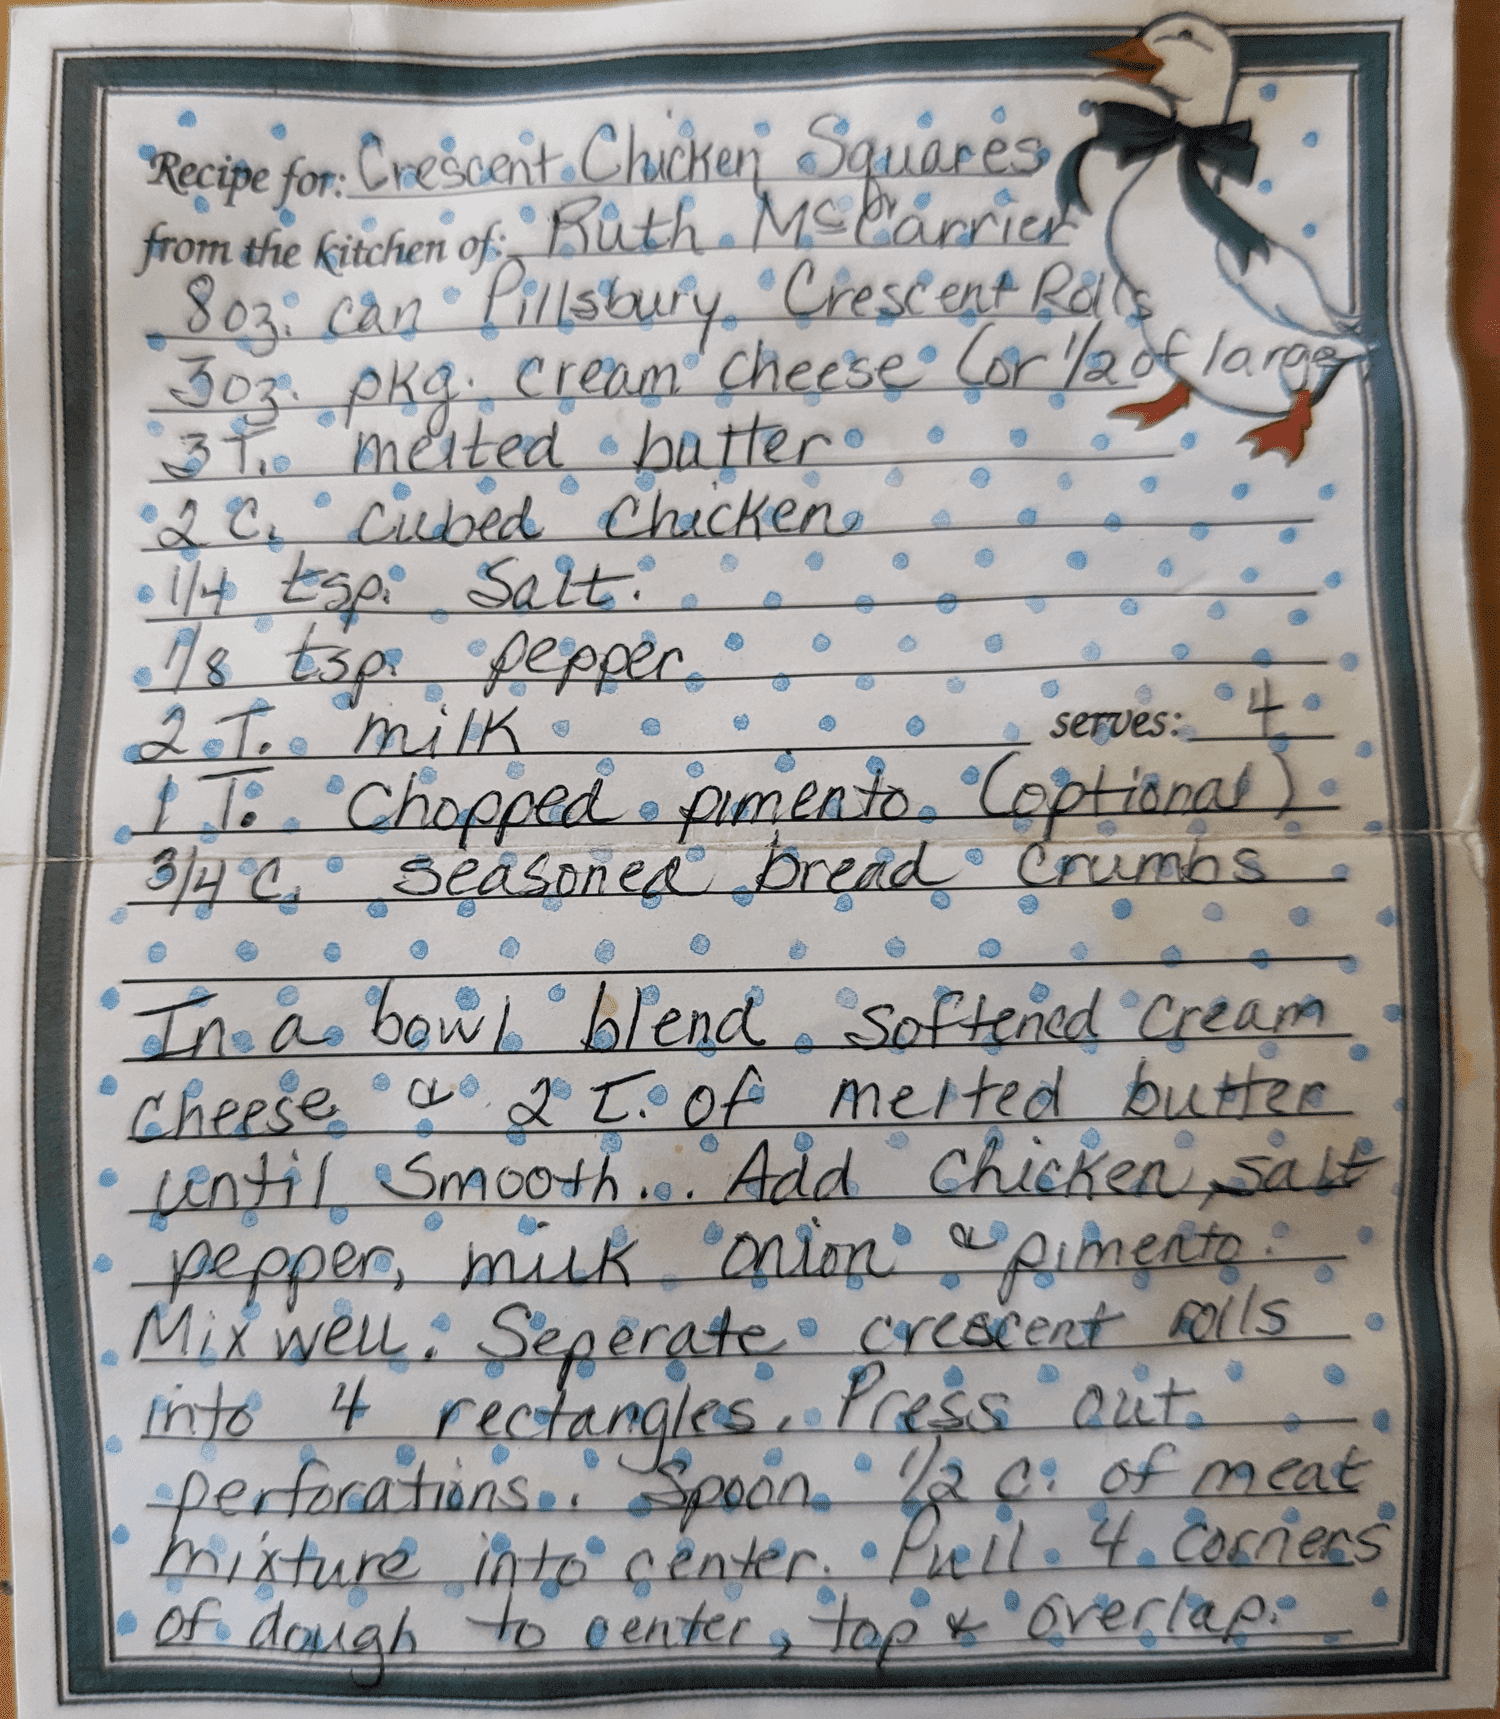 Recipe for: Crescent Chicken Squares
from the kitchen of: Ruth McCarrier
8oz. can Pillsbury Crescent Rolls
3oz. pkg. cream cheese (or 1/2 of large
3 T. melted butter
2 C. cubed chicken
1/4 tsp. salt.
1/8 tsp. pepper
2 T. milk serves: 4
1 T. chopped pimento (optional)
3/4 C. seasoned bread crumbs
In a bowl blend softened cream
cheese & 2 T. of melted butter
until smooth... Add chicken, salt
pepper, milk onion & pimento.
Mix well. Seperate crescent rolls
into 4 rectangles. Press out
perforations.. Spoon 1/2 C. of meat
mixture into center. Pull 4 corners
of dough to center, top & overlap.